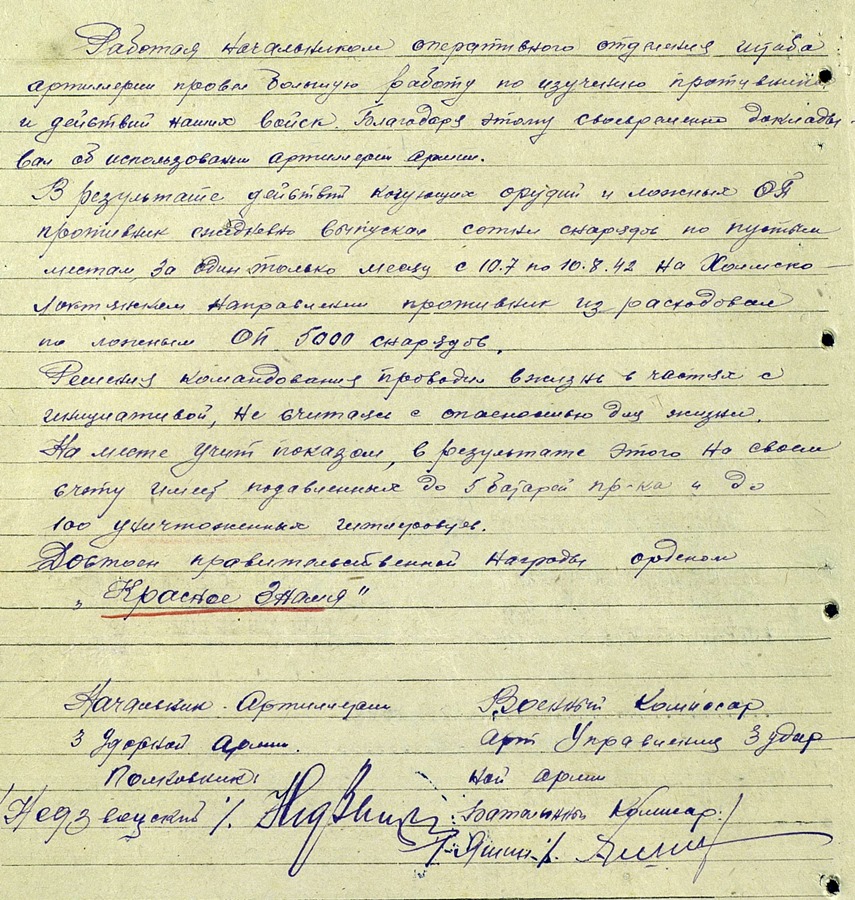 Работая начальником оперативного отделения штаба
артиллерии провел большую работу по изучению противника
и действий наших войск. Благодаря этому своевременно доклады-
вал об использовании артиллерии армии.
В результате действий кочующих орудий и ложных ОП
противник ежедневно выпускал сотни снарядов по пустым
местам, за один только месяц с 10.7 по 10.8.42 на Холмско-
направлении противник израсходовал
по ложным ОП 5000 снарядов.
Решения командования проводил в жизнь в частях с
инициативой, не считаясь с опасностью для жизни.
На месте учит показом, в результате этого на своем
счету имеет подавленных до 5 батарей пр-ка и до
100 уничтоженных гитлеровцев.
Достоин правительственной награды орденом
„Красное Знамя"
Начальник Артиллерии
3 Ударной армии.
Полковник
/Недзвецкий/.
Военный Комиссар
Арт Управления 3 удар-
ной армии
Батальонный Комисар
/Яшин/.